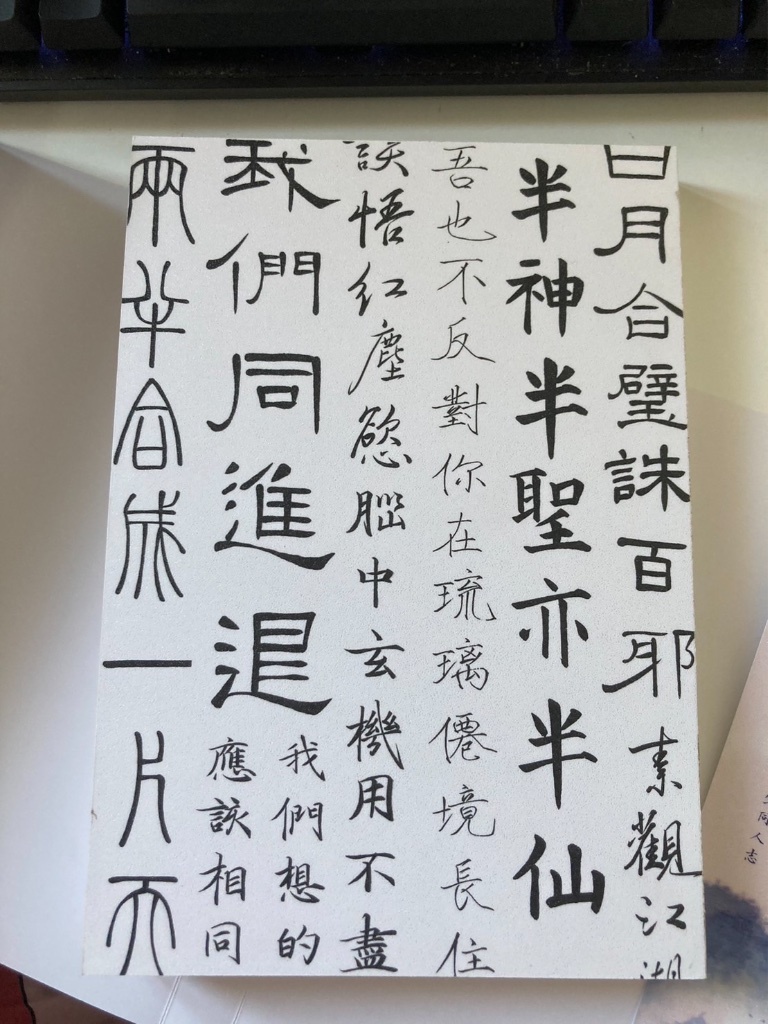 日月合璧誅百邪
素觀江湖
半神半聖亦半仙
吾也不反對你在琉璃僊境長住
談悟紅塵慾腦中玄機用不盡
我們同進退
我們想的
應該相同
兩半合成一片天